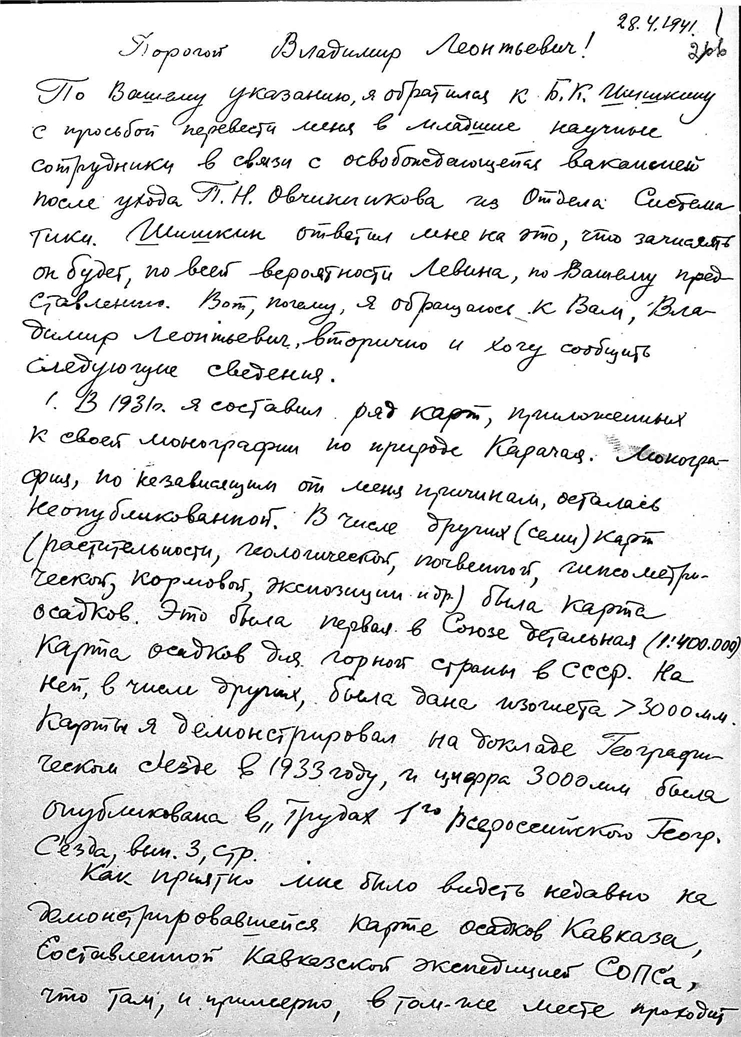 28.4.1941.
Дорогой Владимир Леонтьевич!
По Вашему указанию, я обратился к Б.К. Шишкину
с просьбой перевести меня в младшие научные
сотрудники в связи с освобождающейся вакансией
после ухода П.Н. Овчинникова из Отдела Система
тики. Шишкин ответил мне на это, что зачислять
он будет, по всей вероятности Левина, по Вашему пред-
ставлению. Вот, почему, я обращаюсь к Вам, Вла-
димир Леонтьевич, вторично и хочу сообщить
следующие сведения.
1. В 1931г. я составил ряд карт, приложенных
к своей монографии по природе Карачая. Моногра-
фия, по независящим от меня причинам, осталась
неопубликованной. В числе других (семи) карт
(растительности, геологической, почвенной, гипсометри-
ческой, кормовой, экспозиции и др.) была карта
осадков. Это была первая в Союзе детальная (1:400.000)
карта осадков для горной страны в СССР. На
ней, в числе других, была дана изогиета >3000 мм.
Карты я демонстрировал на докладе Географи-
ческом съезде в 1933 году, и цифра 3000 мм была
опубликована в „Трудах 1го Всероссийского Геогр.
С'езда, вып. 3, стр.
Как приятно мне было видеть недавно на
демонстрировавшейся карте осадков Кавказа,
составленной Кавказской экспедицией СОПСа,
что там, и примерно, в том-же месте проходит